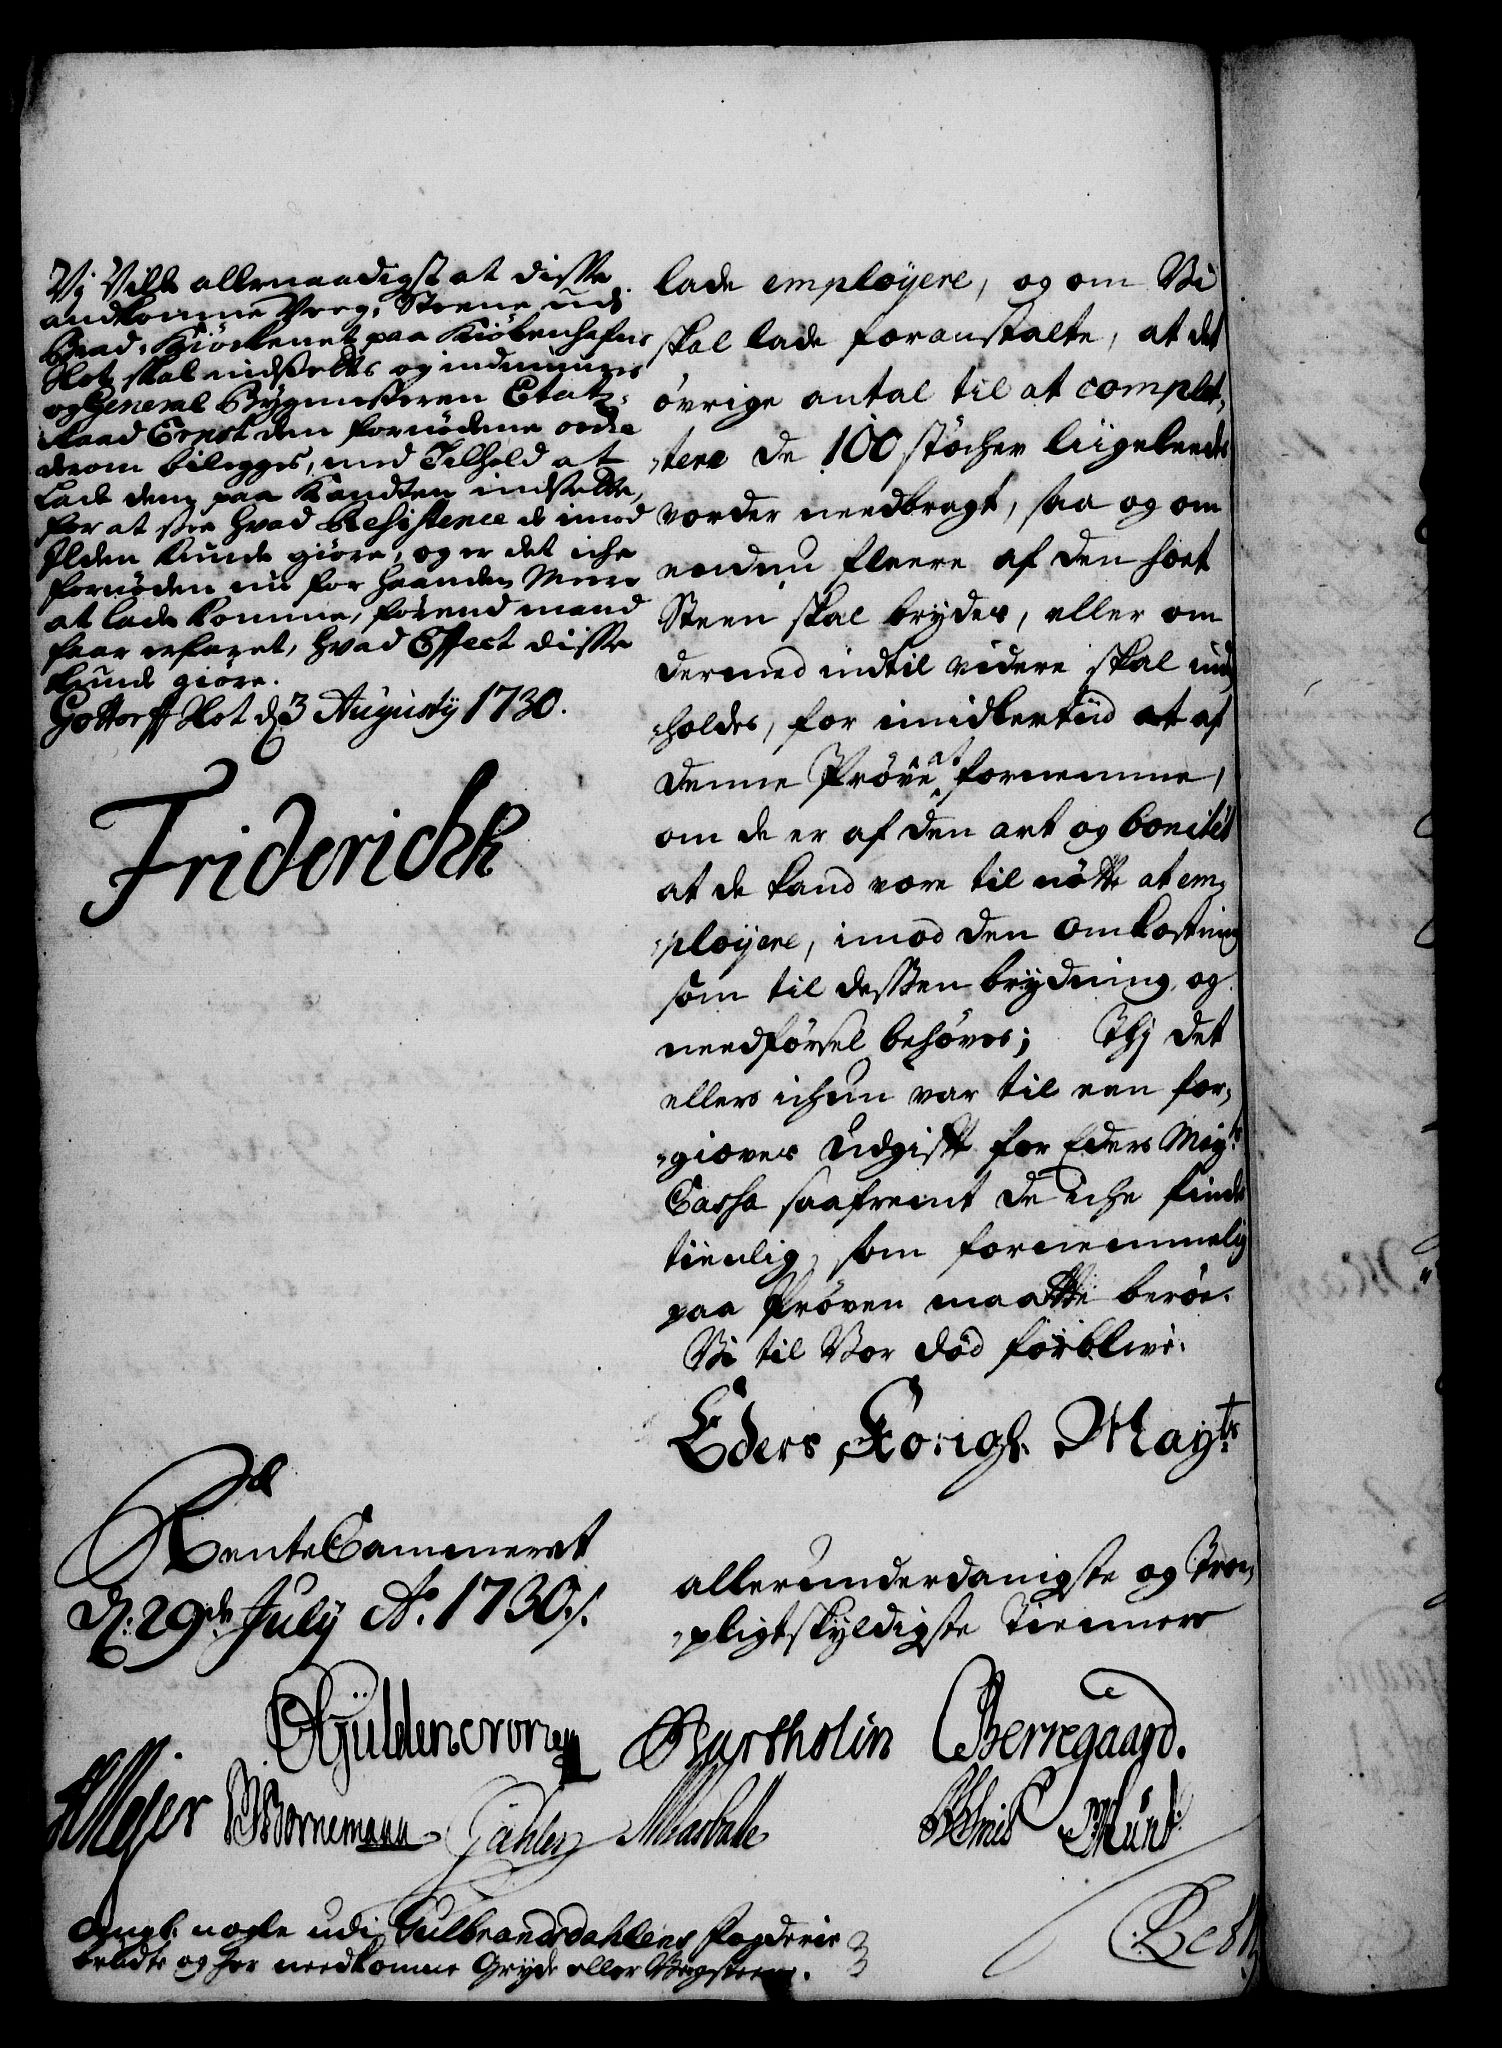 Vj Ville allernaadigst at disse
andkomne Veeg-Steene udj
Brad-Kiøckenet paa Kiøbenhafns
Slot skal indsettes og indmuures
og General Bygmesteren Etatz-
Raad Ernst den fornødne ordre
derom bilegges, med Tilhold at
lade dem paa Kandten indsette,
for at see hvad Resistence de imod
Ilden kunde giøre, og er det iche
fornøden nu for haanden Meere
at lade komme, førend mand
faar erfaret, hvad Effect disse
kunde giøre.
Gottorff Slot d. 3 Augustij 1730.
Friderich R
lade employere, og om Vi
skal lade foranstalte, at det
øvrige antal til at complet-
-tere de 100 støcher liigeleedes
vorder needbragt, saa og om
endnu fleere af den sort
Steen skal brydes, eller om
dermed indtil videre skal ind-
-holdes, for imidlertiid at af
denne Prøve at fornemme,
om de er af den art og bonitet
at de kand være til nøtte at em-
-ployere, imod den omkostning
som til dessen brydning og
needførsel behøves; Thj det
ellers ichun var til een for-
-gieves Udgifft for Eders Mayts
Cassa saafremt de iche findes
tienlig, som fornemmelig
paa Prøven maatte beroe.
Vi til Vor død forblive.
Eders Kongl. Mayts
allerunderdanigste og Troe-
-pligtskyldigste Tiennere
Rente Cammeret
d. 29de July Ao. 1730 ./.
Gyldencrone Bartholin Berregaard.
Meyer Bornemann
Angl. nogle udi Gulbrandsdahlens fogderie
brudte og her needkomne Gryde eller Vegsteene.